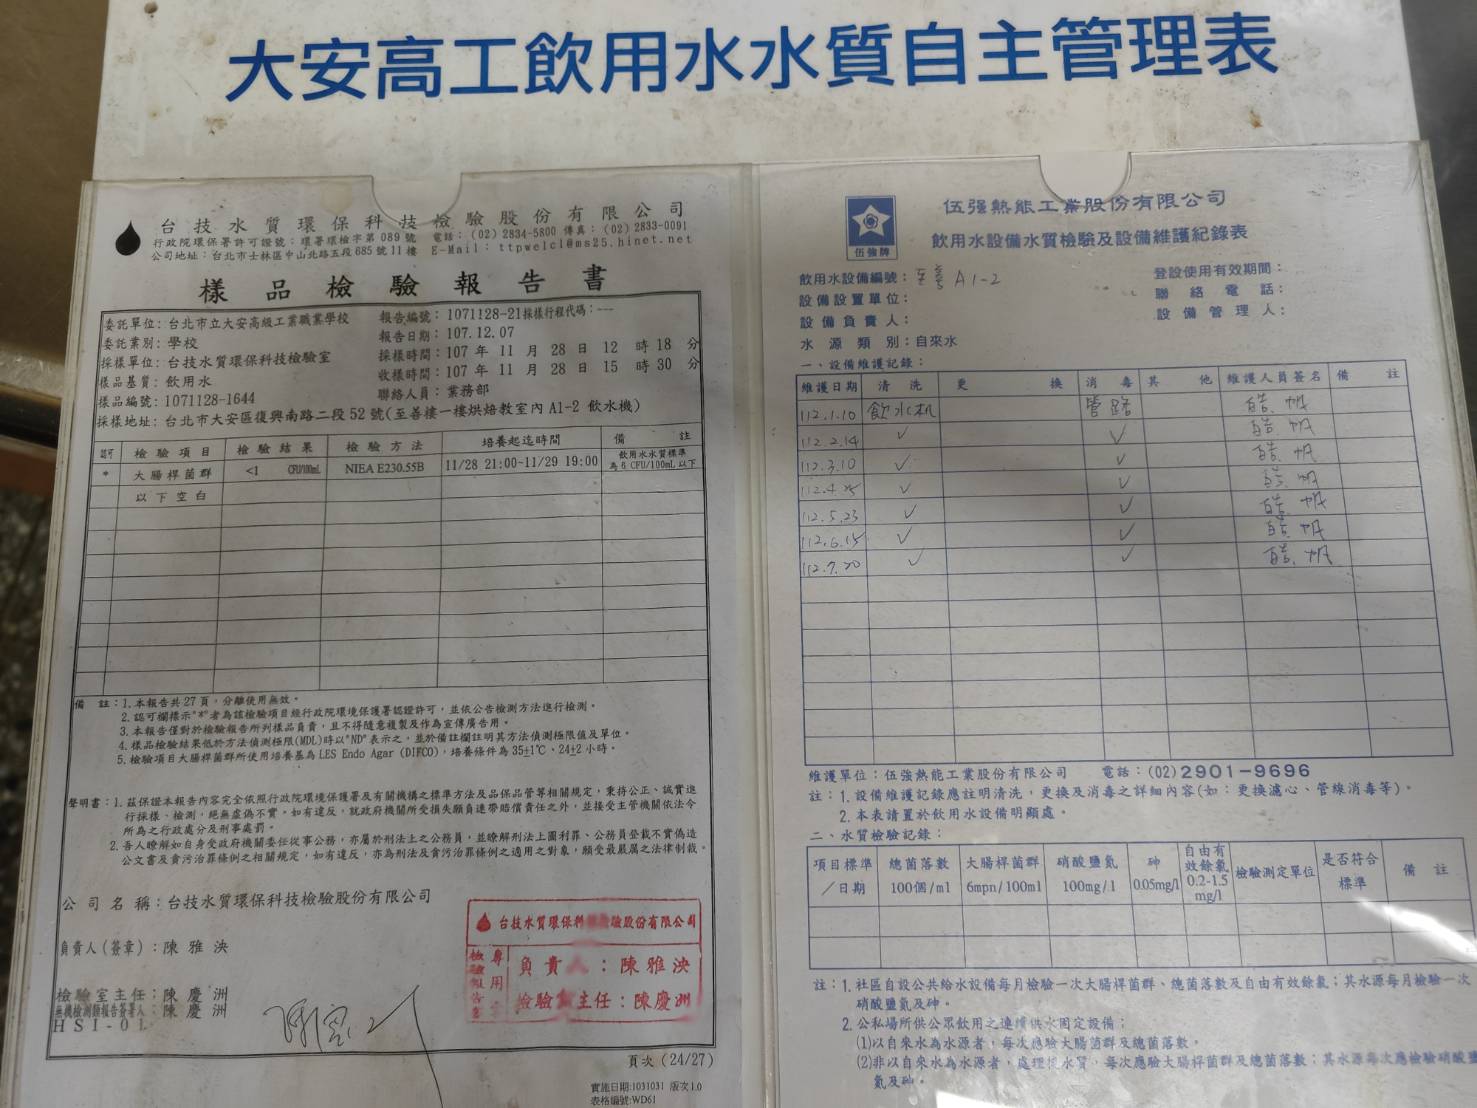 大安高工飲用水水質自主管理表
台技水質環保科技檢驗股份有限公司
行政院環保署許可證號：環署環檢字第 089 號 電話：(02) 2834-5800 傳真：(02) 2833-0091
公司地址：台北市士林區中山北路五段 685 號 11 樓 E-Mail：ttpwelcl@ms25.hinet.net
樣品檢驗報告書
委託單位：台北市立大安高級工業職業學校 報告編號：1071128-21採樣行程代碼：---
委託業別：學校 報告日期：107.12.07
採樣單位：台技水質環保科技檢驗室 採樣時間：107 年 11 月 28 日 12 時 18 分
樣品基質：飲用水 收樣時間：107 年 11 月 28 日 15 時 30 分
樣品編號：1071128-1644 聯絡人員：業務部
採樣地址：台北市大安區復興南路二段 52 號(至善樓一樓烘焙教室內 A1-2 飲水機)
認可 檢驗項目 檢驗結果 檢驗方法 培養起迄時間 備註
* 大腸桿菌群 <1 CFU/100mL NIEA E230.55B 11/28 21:00~11/29 19:00 飲用水水質標準
為 6 CFU/100mL 以下
以下空白
備 註：1.本報告共27頁，分離使用無效。
2.認可欄標示"*"者為該檢驗項目經行政院環境保護署認證許可，並依公告檢測方法進行檢測。
3.本報告僅對於檢驗報告所列樣品負責，且不得隨意複製及作為宣傳廣告用。
4.樣品檢驗結果低於方法偵測極限(MDL)時以"ND"表示之，並於備註欄註明其方法偵測極限值及單位。
5.檢驗項目大腸桿菌群所使用培養基為 LES Endo Agar (DIFCO)，培養條件為 35±1℃、24±2 小時。
聲明書：1.茲保證本報告內容完全依照行政院環境保護署及有關機構之標準方法及品保品管等相關規定，秉持公正、誠實進
行採樣、檢測，絕無虛偽不實。如有違反，就政府機關所受損失願負連帶賠償責任之外，並接受主管機關依法令
所為之行政處分及刑事處罰。
2.吾人瞭解如自身受政府機關委任從事公務，亦屬於刑法上之公務員，並瞭解刑法上圖利罪、公務員登載不實偽造
公文書及貪污治罪條例之相關規定，如有違反，亦為刑法及貪污治罪條例之適用之對象，願受最嚴厲之法律制裁。
公司名稱：台技水質環保科技檢驗股份有限公司
負責人(簽章)：陳雅泱
檢驗室主任：陳慶洲
無機檢測類報告簽署人：陳慶洲
HSI-01
台技水質環保科 檢驗股份有限公司
檢驗報告書
專用章
負責人：陳雅泱
檢驗室主任：陳慶洲
頁次 (24/27)
實施日期:1031031 版次1.0
表格編號:WD61
伍強牌
伍强熱能工業股份有限公司
飲用水設備水質檢驗及設備維護紀錄表
飲用水設備編號：至善 A1-2 登設使用有效期間：
設備設置單位： 聯絡電話：
設備負責人： 設備管理人：
水源類別：自來水
一、設備維護記錄：
維護日期 清洗 更換 消毒 其他 維護人員簽名 備註
112.1.10 飲水机 管路
112.2.14 ✓ ✓
112.3.10 ✓ ✓
112.4.25 ✓ ✓
112.5.23 ✓ ✓
112.6.15 ✓ ✓
112.7.20 ✓ ✓
維護單位：伍強熱能工業股份有限公司 電話：(02)2901-9696
註：1.設備維護記錄應註明清洗，更換及消毒之詳細內容(如：更換濾心、管線消毒等)。
2.本表請置於飲用水設備明顯處。
二、水質檢驗記錄：
項目標準／日期 總菌落數 100個/ml 大腸桿菌群 6mpn/100ml 硝酸鹽氮 100mg/l 砷 0.05mg/l 自由有效餘氯 0.2-1.5 mg/l 檢驗測定單位 是否符合標準 備註
註：1.社區自設公共給水設備每月檢驗一次大腸桿菌群、總菌落數及自由有效餘氯；其水源每月檢驗一次
硝酸鹽氮及砷。
2.公私場所供公眾飲用之連續供水固定設備；
(1)以自來水為水源者，每次應驗大腸菌群及總菌落數。
(2)非以自來水為水源者，處理後水質，每次應驗大腸桿菌群及總菌落數；其水源每次應檢驗硝酸鹽
氮及砷。